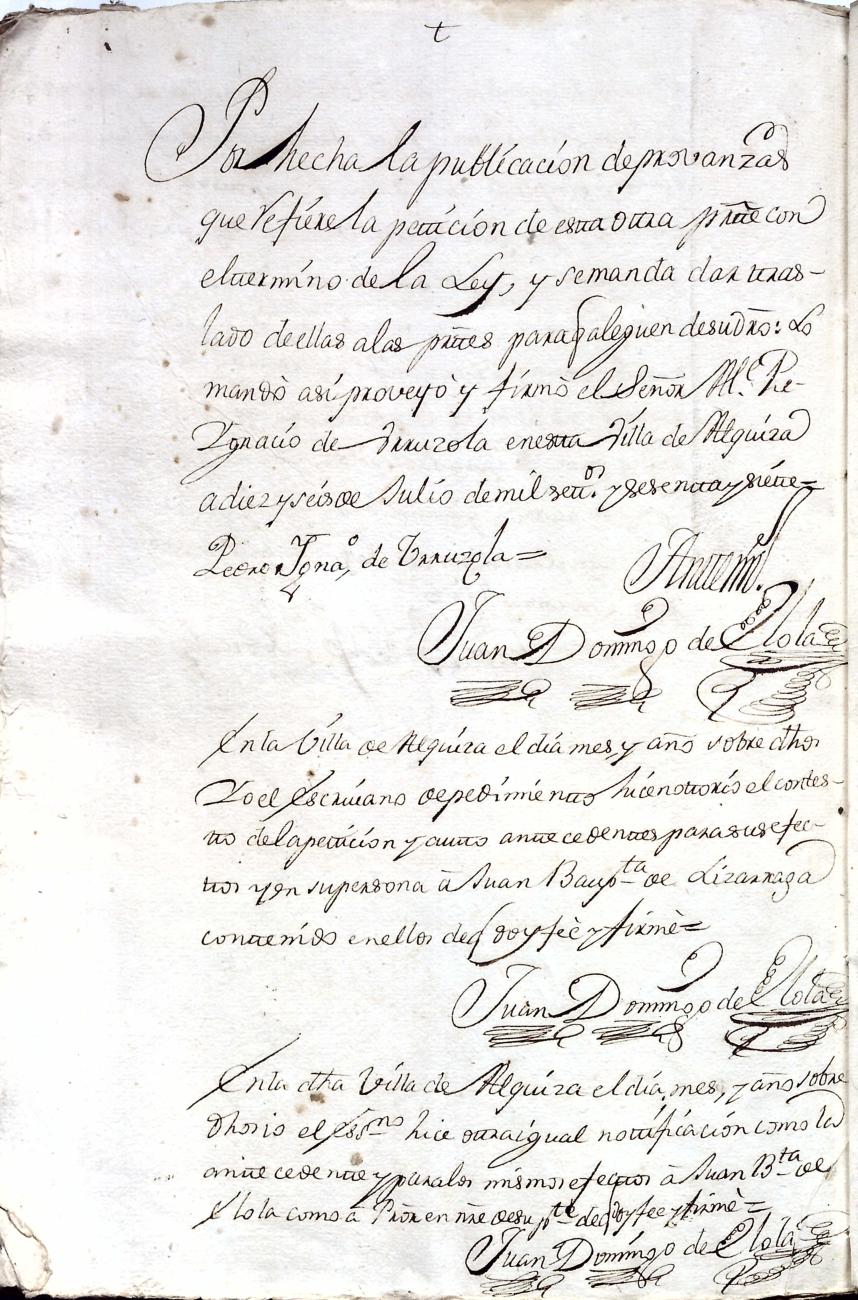 t
Por hecha la publicacion de provanzas
que refiere la peticion de esta otra prte con
el termino de la Ley, y se manda dar tras-
lado de ellas a las prtes para q aleguen de su dro: Lo
mandò asi proveyò y firmò el Señor Alc.e Pe-
Ygnacio de Yrruzola en esta Villa de Alquiza
a diez y seis de Julio de mil sett.os y sesenta y siete=
Pedro Igna.o de Yrruzola=
Antemi.
Juan Domingo de Elola
En la Villa de Alquiza el dia mes, y año sobre dhos
Yo el Escrivano de pedimiento hice notorio el contes-
to de la peticion y auto antecedentes para sus efec-
tos y en su persona â Juan Baup.ta de Lizarraga
contenido en ellos de q doy feè y firmè=
Juan Domingo de Elola
En la dha Villa de Alquiza el dia, mes, y año sobre
dhos io el Ess.no hice otra igual notificacion como la
antecedente y para los mismos efectos â Juan B.ta de
Elola como â Pror en nre de su p.te de q doy fee y firmè=
Juan Domingo de Elola